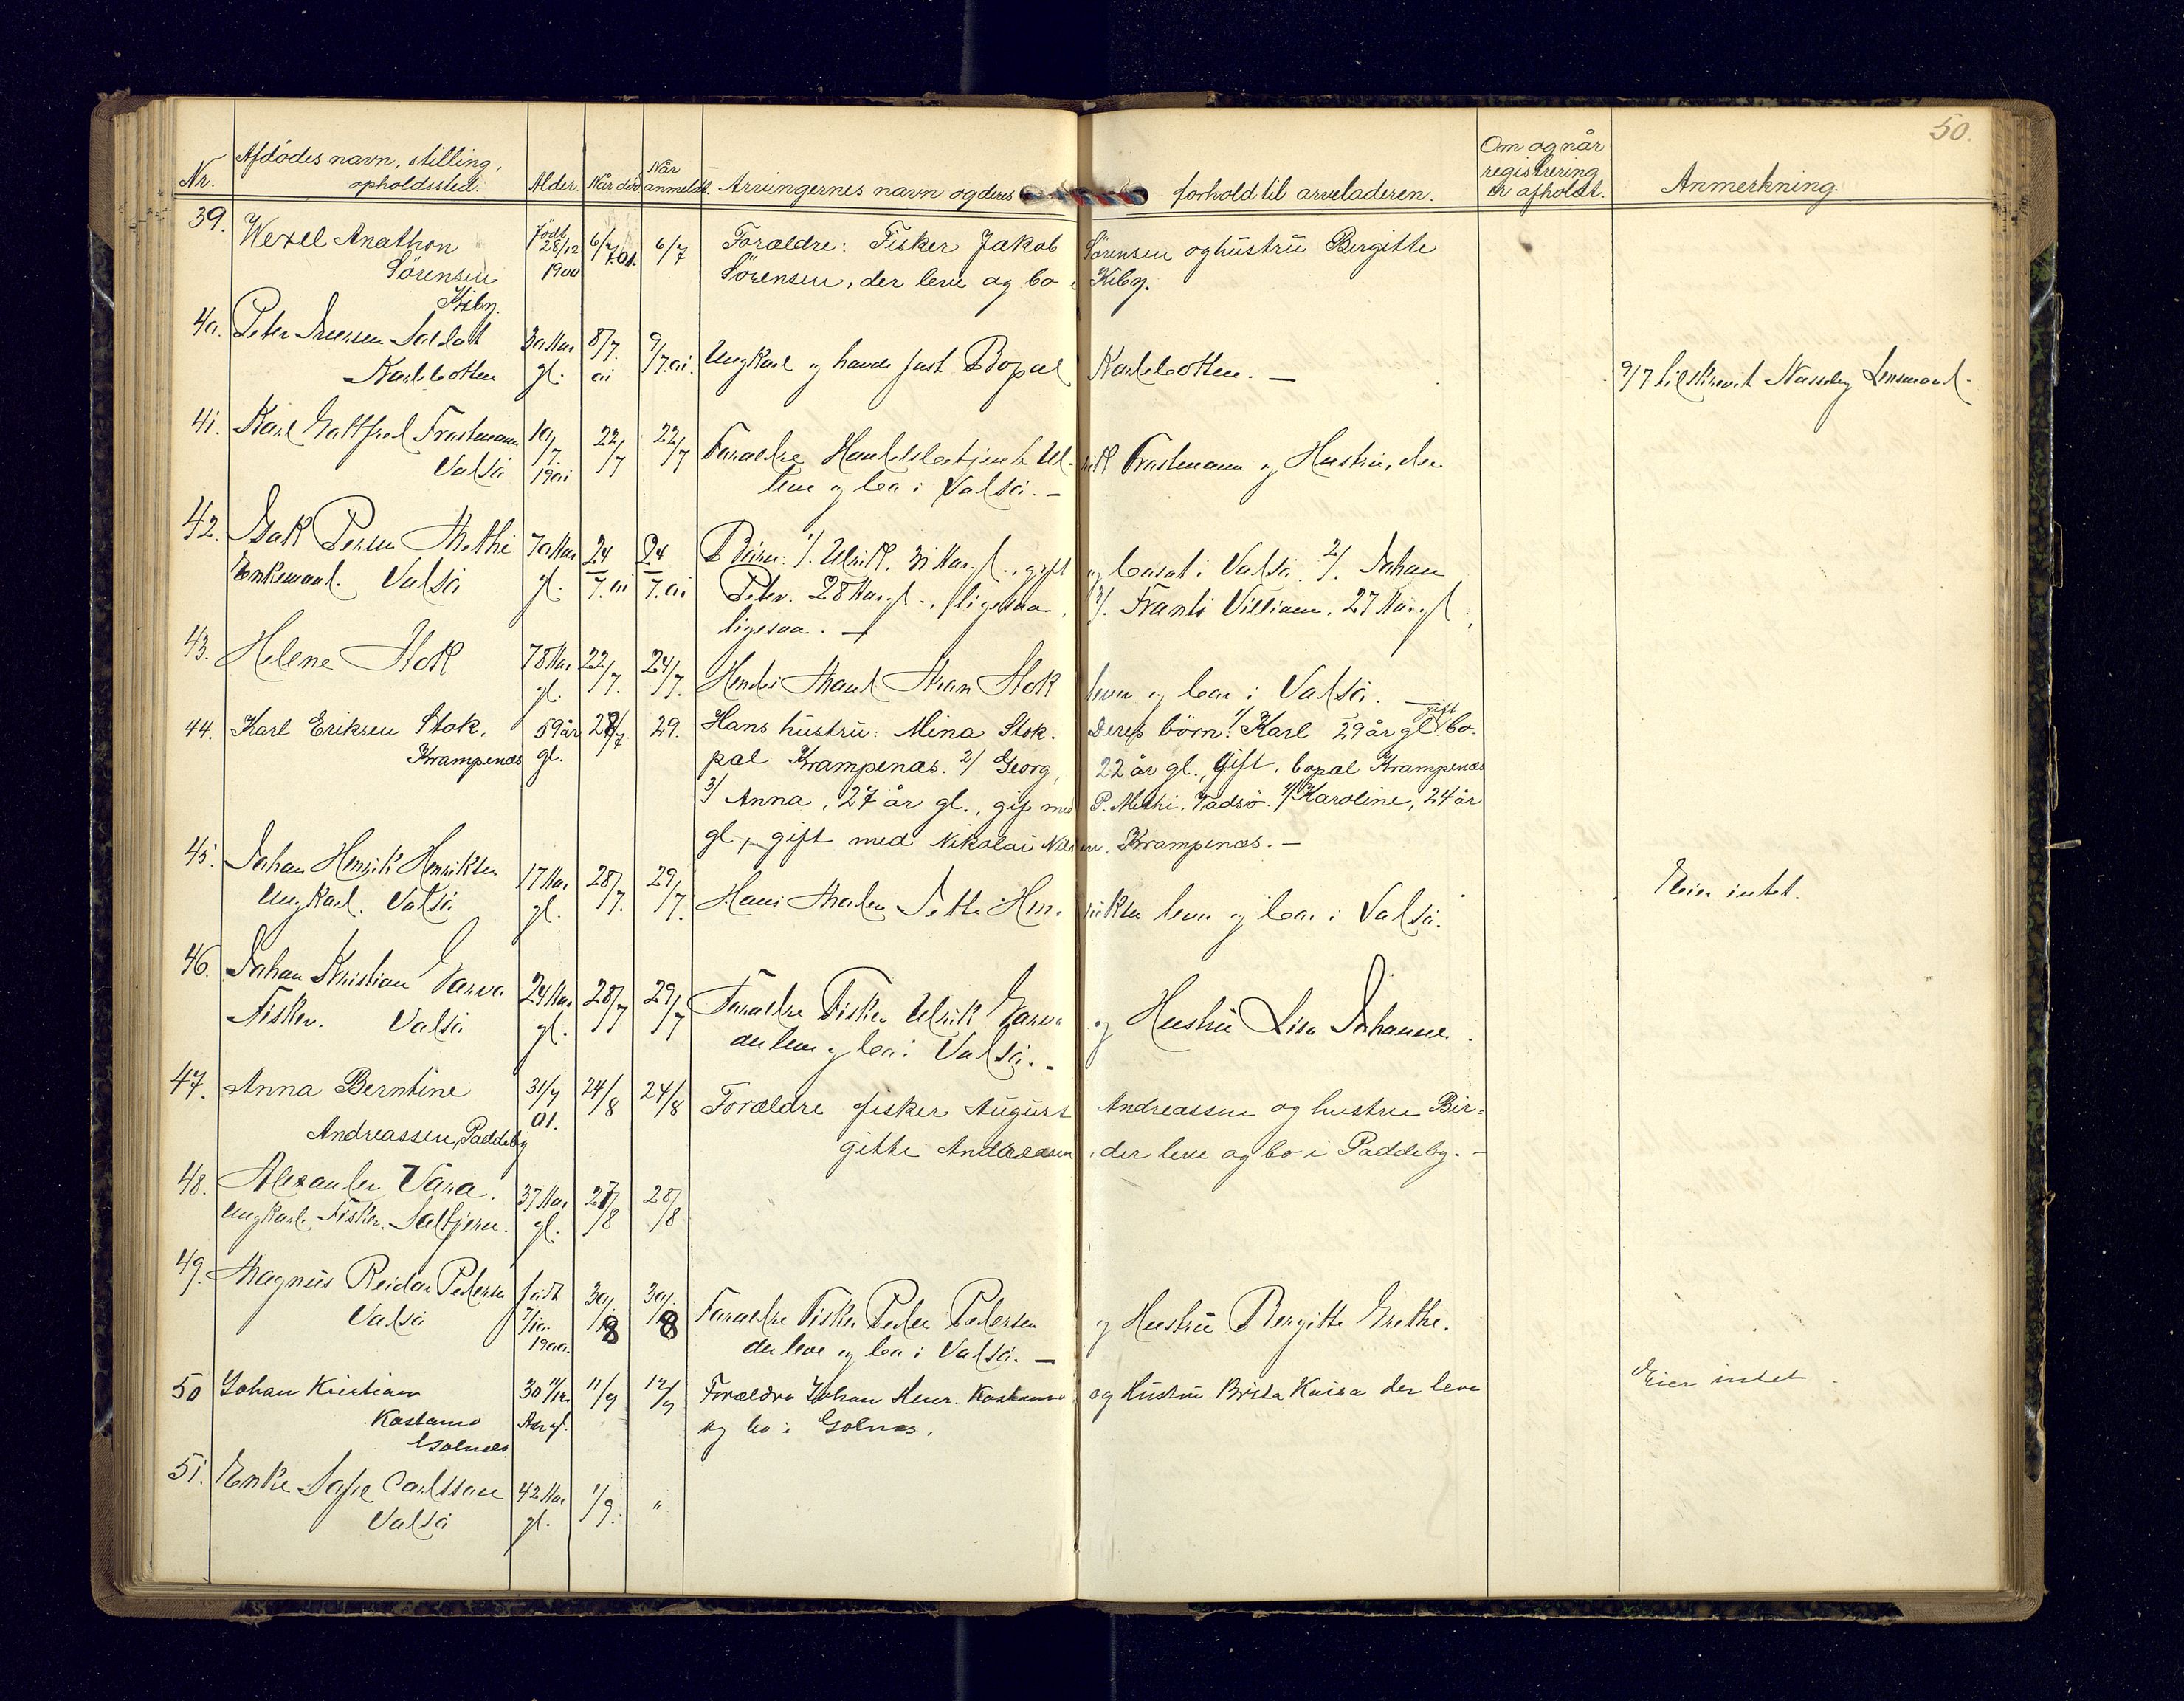 50.
Nr. Afdödes navn, stilling, opholdssted. Alder. Når död Når anmeldt. Arvingernes navn og deres forhold til arveladeren. Om og når registrering er afholdt. Anmerkning.
39. Wexel Anathon födt 28/12 6/7 01. 6/7 Forældre: Fisker Jakob Sörensen og hustru Bergitte
Sörensen 1900 Sörensen, der leve og bo i Kiby.
Kiby.
40. Peter Saldat 30 Aar 8/7 9/7 01. Ungkarl og havde fast Bopæl Karlebotten. — 9/7 tilskrevet Næsseby Lensmand.
Karlebotten gl. 01
41. Karl Gottfred Frastmann 10/7 22/7 22/7 Forældre Handelsbetjent Ulrik Frastmann og Hustru, der
Vadsö 1901 leve og bo i Vadsö. —
42. Isak Persen Methi 70 Aar 24 24 Börn: 1/. Ulrik, 31 Aar gl., gift og bosat i Vadsö. 2/. Johan
Enkemand. Vadsö gl. 7.01 7.01 Peter. 28 Aar gl., ligesaa, 3/. Frants Villiam, 27 Aar gl,
ligesaa. —
43. Helene Stok 78 Aar 22/7. 24/7. Hendes Mand Stok lever og bor i Vadsö. —
gl.
44. Karl Eriksen Stok. 59 år 28/7. 29. Hans hustru: Mina Stok. Deres börn: 1/ Karl 29 år gl. gift bo-
Krampenæs gl. pæl Krampenæs. 2/ Georg, 22 år gl., gift, bopæl Krampenæs
3/ Anna, 27 år gl., gift med P. Methi. Vadsö. 4/ Karoline, 24 år
gl., gift med Nikolai Nilsen. Krampenæs. —
45. Johan Henrik Henriksen 17 Aar 28/7. 29/7. Hans Moder Jette Henriksen lever og bor i Vadsö. Eier intet.
Ungkarl. Vadsö gl.
46. Johan Kristian Garva 24 Aar 28/7 29/7 Forældre Fisker Ulrik Garva og Hustru Lisa Johanne.
Fisker. Vadsö gl. der leve og bo i Vadsö. —
47. Anna Berntine 31/7 24/8 24/8 Forældre fisker August Andreassen og hustru Bir-
Andreassen, Paddeby 01. gitte Andreasen, der leve og bo i Paddeby. —
48. Alexander Vara. 37 Aar 27/8 28/8
Ungkarl. Fisker. gl.
49. Magnus Reidar Pedersen födt 30/8 30/8 Forældre Fisker Peder Pedersen og Hustru Bergitte Grethe.
Vadsö 7/10. 1900. der leve og bo i Vadsö. —
50 Johan Kristian 30 11/12. 11/9 12/9 Forældre Johan Henr. Kostamo og Hustru Brita Kaisa der leve Eier intet.
Kostamo Aar gl. og bo i Golnæs.
Golnæs
51. Enke Sofie Carlssen 42 Aar 1/9. "
Vadsö gl.